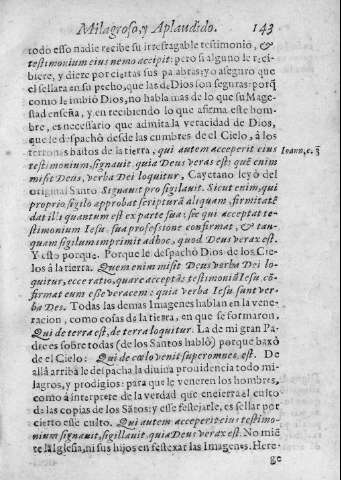 Milagroso, y Aplaudido. 143
todo esso nadie recibe su irrefragable testimonio, &
testimonium eius nemo accipit: pero si alguno le reci-
biere, y diere por ciertas sus palabras: yo aseguro que
el sellara en su pecho, que las de Dios son seguras: porq̃
como le imbió Dios, no habla mas de lo que su Mages-
tad enseña, y en recibiendo lo que afirma este hom-
bre, es necessario que admita la veracidad de Dios,
que le despachó desde las cumbres de el Cielo, á los
terronas baxos de la tierra, qui autem acceperit eius
Ioann. c. 3
testimonium, signauit. quia Deus verax est: quẽ enim
misit Deus, verba Dei loquitur, Cayetano leyó del
original Santo Signauit pro sigilauit. Sicut enim, qui
proprio sigilo approbat scripturã aliquam, firmitatẽ
dat illi quantum est ex parte sua: sic qui acceptat te-
stimonium Iesu. sua profesione confirmat, & tan-
quam sigilum imprimit ad hoc, quod Deus verax est.
Y esto porque. Porque le despachò Dios de los Cie-
los á la tierra. Quem enim misit Deus verba Dei lo-
quitur, ecce ratio, quare acceptãs testimoniũ Iesu, cõ-
firmat eum esse veracem: quia verba Iesu sunt ver-
ba Des. Todas las demas Imagenes hablan en la vene-
racion, como cosas de la tierra, en que se formaron,
Qui de terra est, de terra loquitur. La de mi gran Pa-
dre es sobre todas (de los Santos habló) porque baxó
de el Cielo: Qui de cælo venit super omnes est. De
allá arriba le despacha la diuina prouidencia todo mi-
lagros, y prodigios: para que le veneren los hombres,
como á interprete de la verdad que encierra el culto
de las copias de los Sãtos: y esse festejarle, es sellar por
cierto esse culto. Qui autem acceperit eius testimo-
nium signauit, sigillauit. quia Deus verax est. No miẽ-
te la Iglesia, ni sus hijos en festexar las Imagenes. Here-
ge